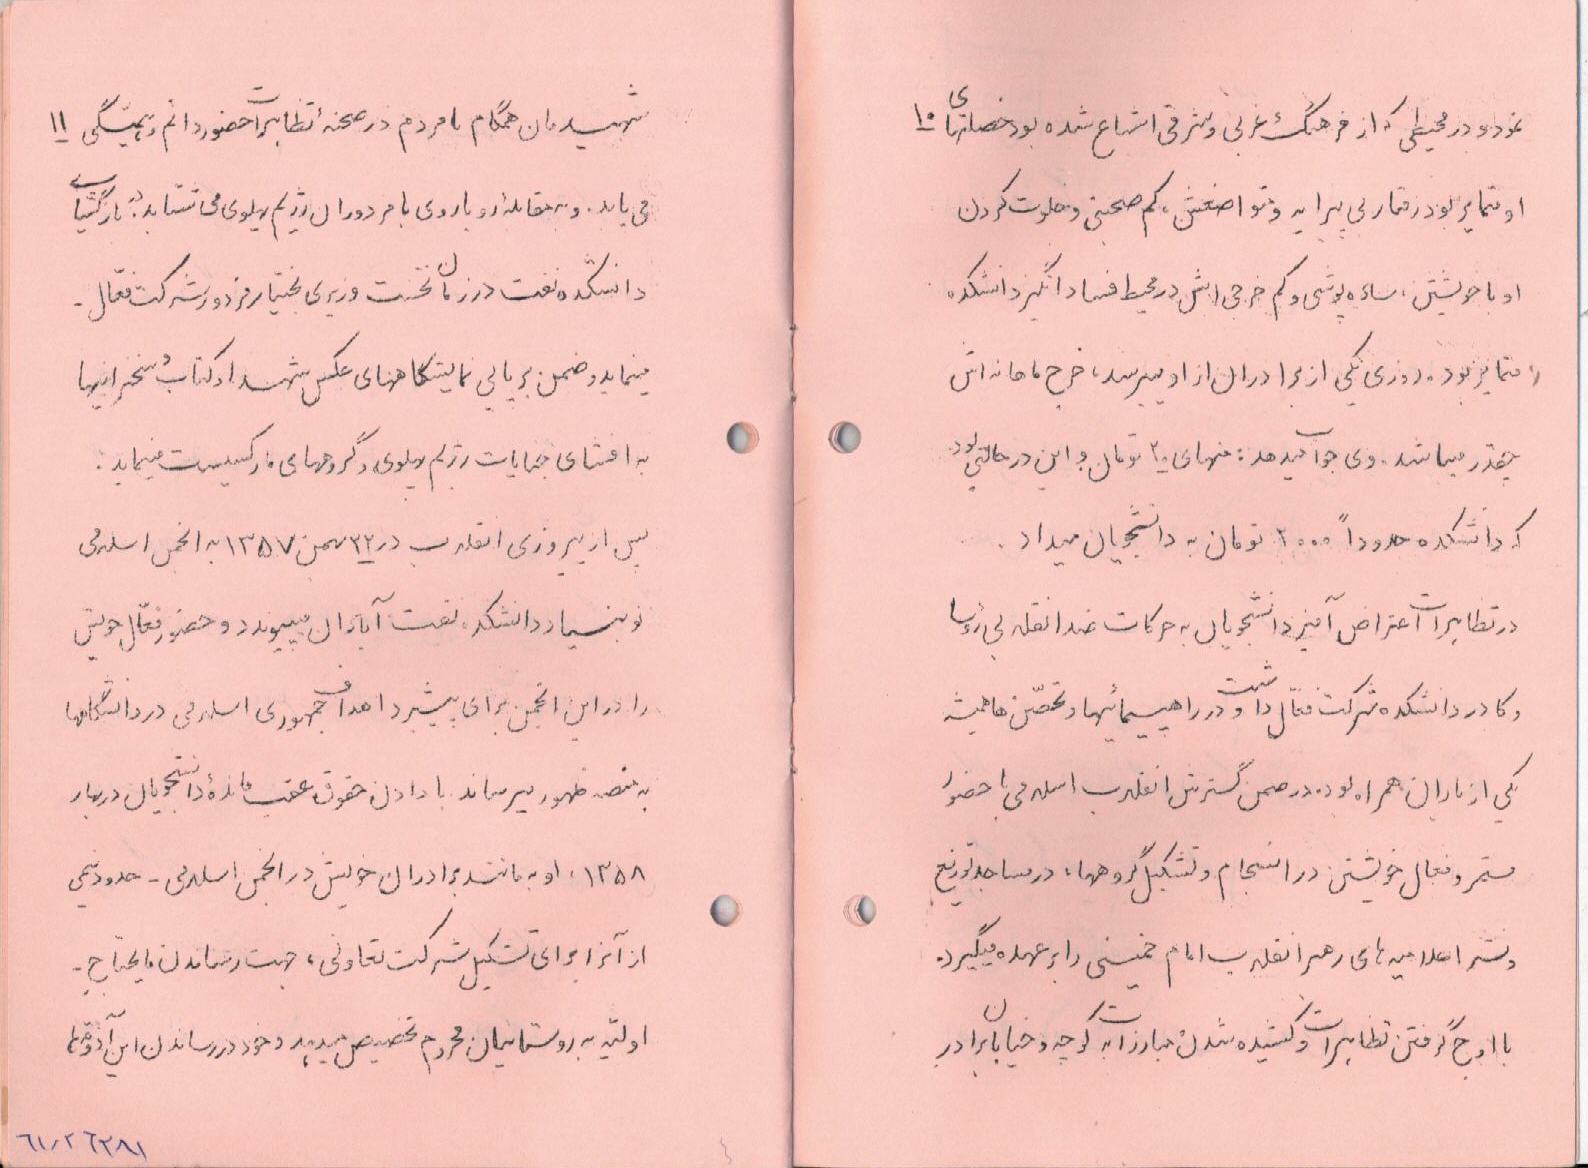 ۱۰
نمود و در محیطی که از فرهنگ غربی و شرقی اشباع شده بود خصلتهای
او متمایز بود رفتار بی پیرایه و تواضعش، کم صحبتی و خلوت کردن
او با خویشتن، ساده پوشی و کم خرجی اش در محیط فساد انگیز دانشکده
متمایز بود. روزی یکی از برادران از او میپرسد، خرج ماهانه اش
چقدر میباشد. وی جواب میدهد: منهای ۲۰ تومان و این در حالتی بود
که دانشکده حدوداً ۲۰۰۰ تومان به دانشجویان میداد.
در تظاهرات اعتراض آمیز دانشجویان به حرکات ضد انقلابی رؤسا
و کادر دانشکده شرکت فعّال داشت و در راهپیمائیها و تحصّن ها همیشه
یکی از یاران همراه بود. در ضمن گسترش انقلاب اسلامی با حضور
مستمر و فعال خویشتن در انسجام و تشکیل گروهها، در مساجد توزیع
و نشر اعلامیه های رهبر انقلاب امام خمینی را بر عهده میگیرد.
با اوج گرفتن تظاهرات و کشیده شدن مبارزات به کوچه و خیابان برادر
۱۱
شهیدمان همگام با مردم در صحنه تظاهرات حضور دائم و همیشگی
می یابد. و به مقابله و رویاروی با مزدوران رژیم پهلوی می شتابد. با بازگشایی
دانشکده نفت در زمان نخست وزیری بختیار مزدور شرکت فعّال -
مینماید و ضمن برپایی نمایشگاههای عکس شهدا و کتاب و سخنرانیها
به افشای جنایات رژیم پهلوی و گروههای مارکسیست مینماید.
پس از پیروزی انقلاب در ۲۲ بهمن ۱۳۵۷ به انجمن اسلامی
نوبنیاد دانشکده نفت آبادان میپیوندد و حضور فعّال خویش
را در این انجمن برای پیشبرد اهداف جمهوری اسلامی در دانشگاهها
به منصه ظهور میرساند. با دادن حقوق عقب مانده دانشجویان در بهار
۱۳۵۸، او به مانند برادران خویش در انجمن اسلامی - حدود نیمی
از آنرا برای تشکیل شرکت تعاونی، جهت رساندن مایحتاج -
اولیّه به روستائیان محروم تخصیص میدهد و خود در رساندن این آذوقه ها
۶۱٫۲۶۲۸۱